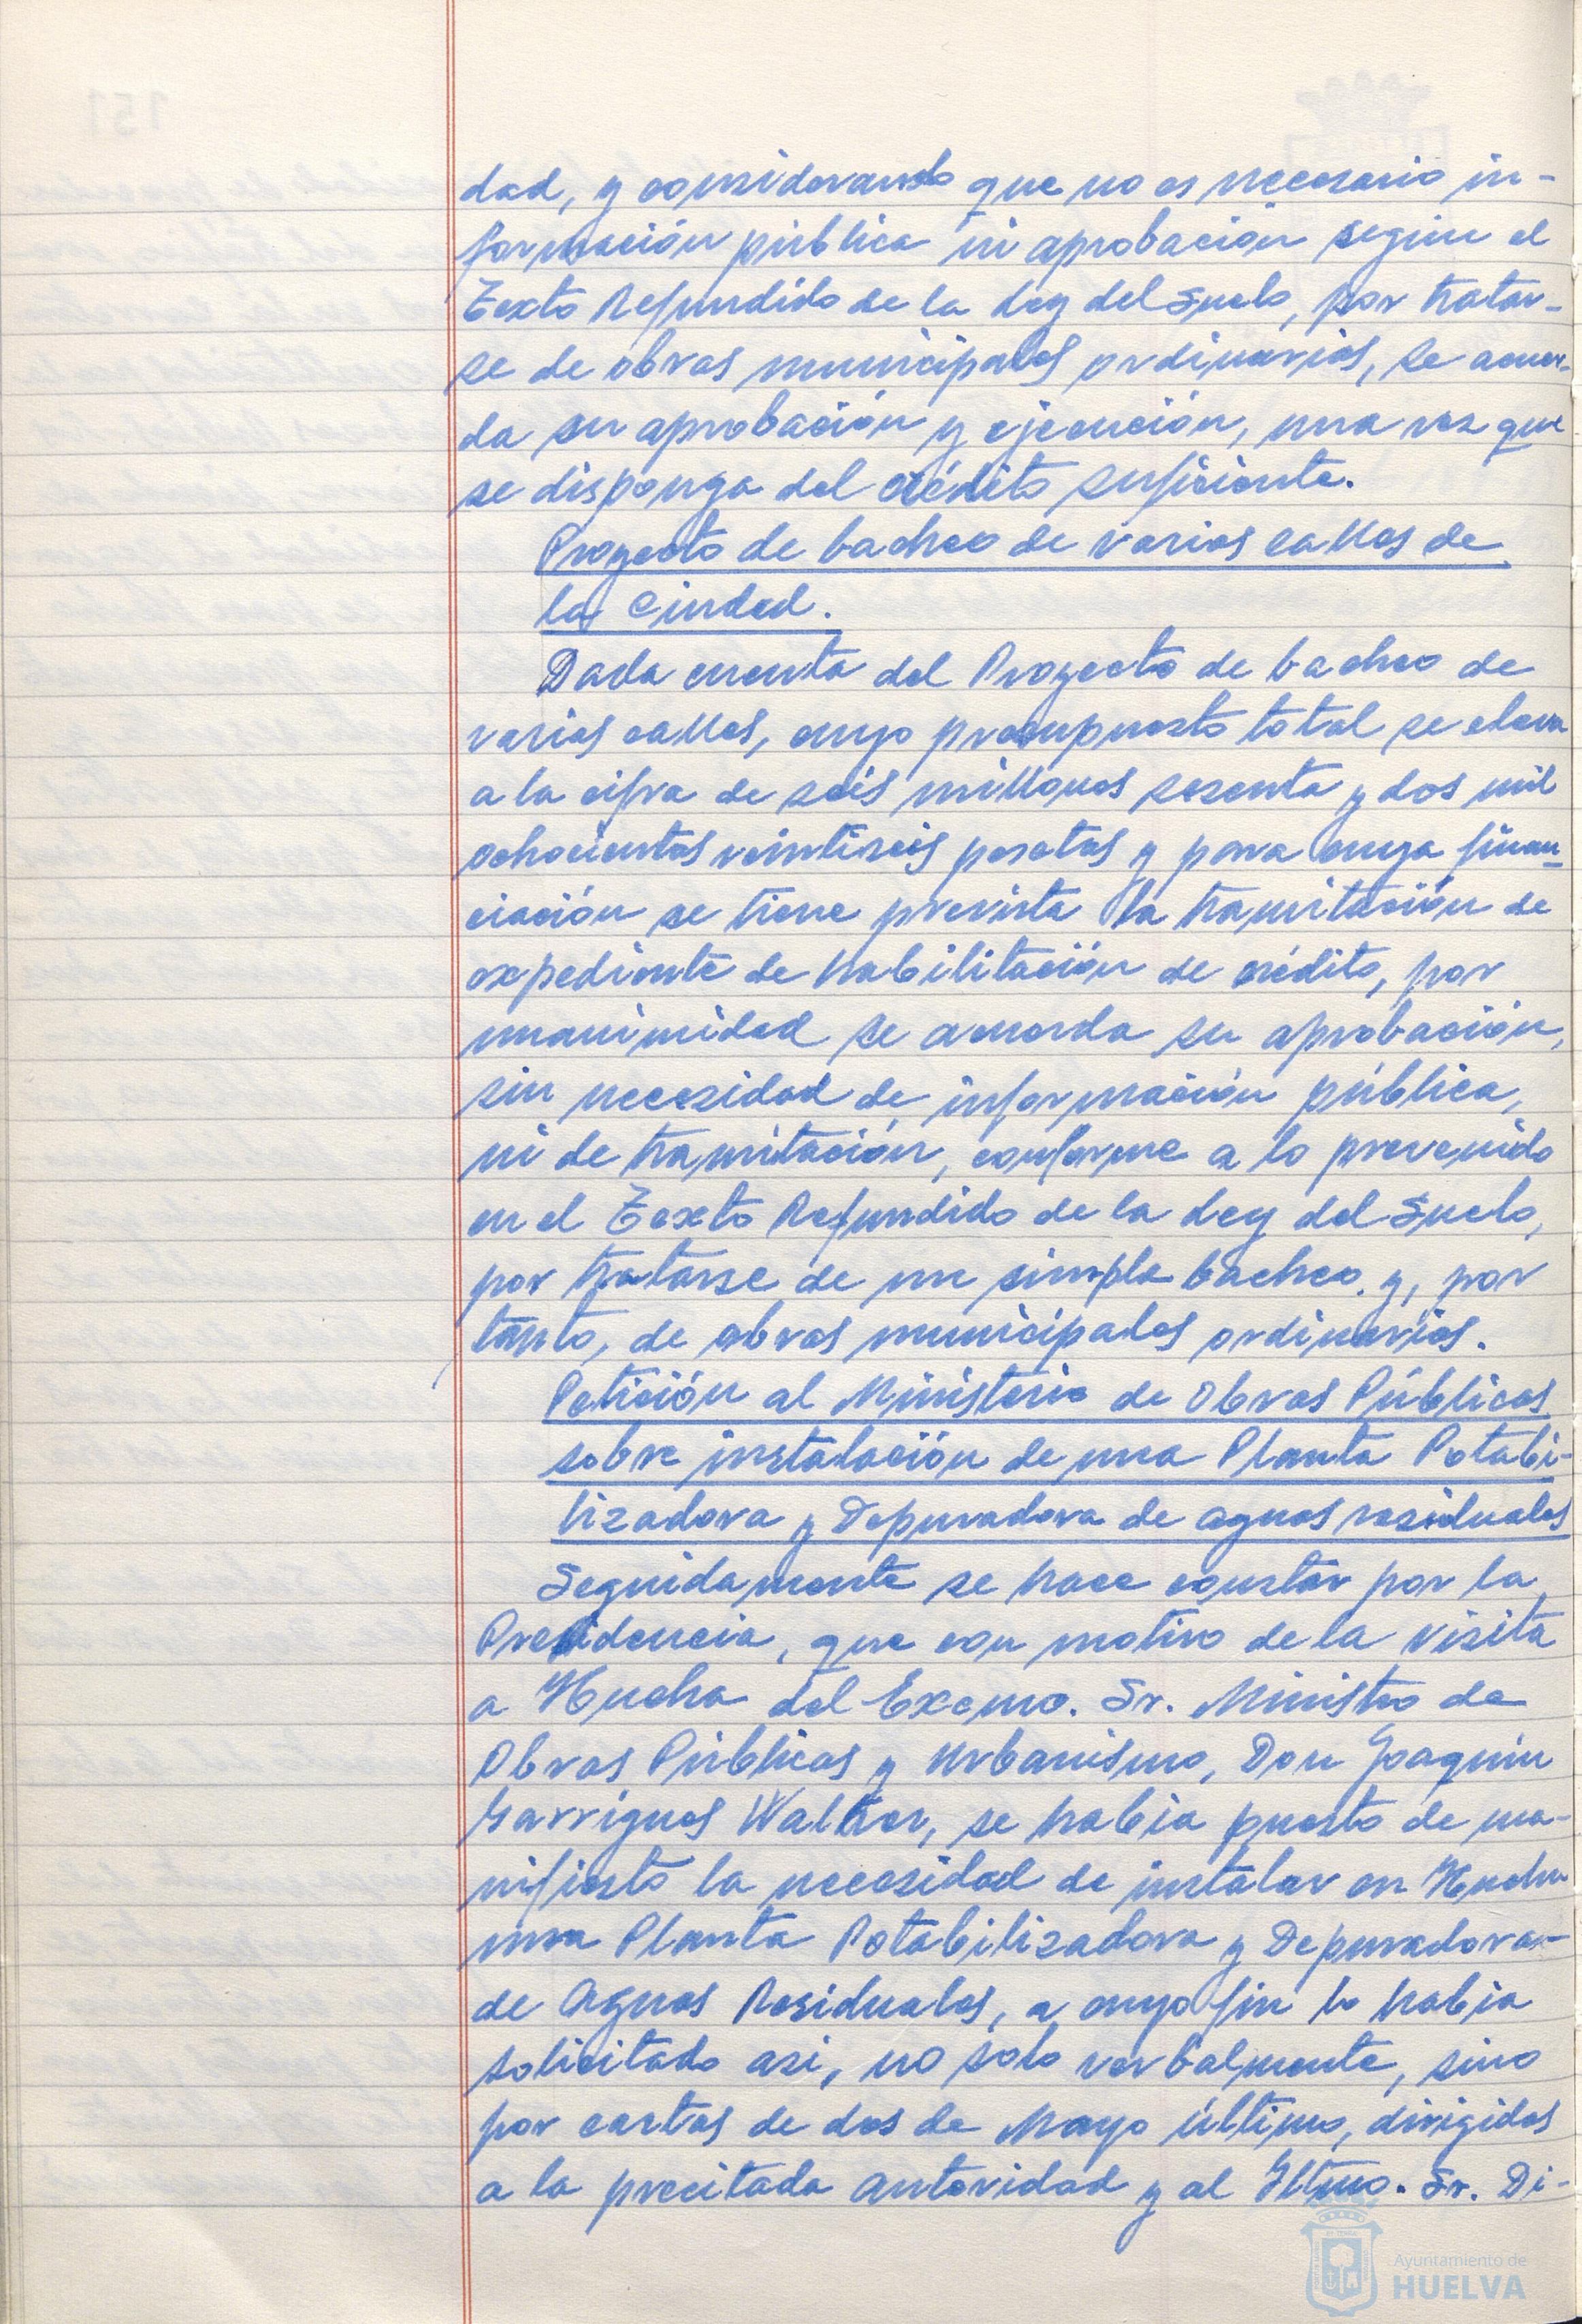 dad, y considerando que no es necesario in-
formación pública ni aprobación segun el
Texto Refundido de la Ley del Suelo, por tratar-
se de obras municipales ordinarias, se acuer-
da su aprobación y ejecución, una vez que
se disponga del crédito suficiente.
Proyecto de bacheo de varias calles de
la Ciudad.
Dada cuenta del Proyecto de bacheo de
varias calles, cuyo presupuesto total se eleva
a la cifra de seis millones sesenta y dos mil
ochocientas veintiseis pesetas y para cuya finan-
ciación se tiene prevista la tramitación de
expediente de habilitación de crédito, por
unanimidad se acuerda su aprobación,
sin necesidad de información pública,
ni de tramitación, conforme a lo prevenido
en el Texto Refundido de la Ley del Suelo,
por tratarse de un simple bacheo y, por
tanto, de obras municipales ordinarias.
Petición al Ministerio de Obras Públicas
sobre instalación de una Planta Potabi-
lizadora y Depuradora de aguas residuales
Seguidamente se hace constar por la
Presidencia, que con motivo de la visita
a Huelva del Excmo. Sr. Ministro de
Obras Públicas y Urbanismo, Don Joaquin
Garrigues Walker, se habia puesto de ma-
nifiesto la necesidad de instalar en Huelva
una Planta Potabilizadora y Depuradora-
de Aguas Residuales, a cuyo fin lo habia
solicitado asi, no solo verbalmente, sino
por cartas de dos de Mayo último, dirigidas
a la precitada Autoridad y al Iltmo. Sr. Di-
Ayuntamiento de
HUELVA